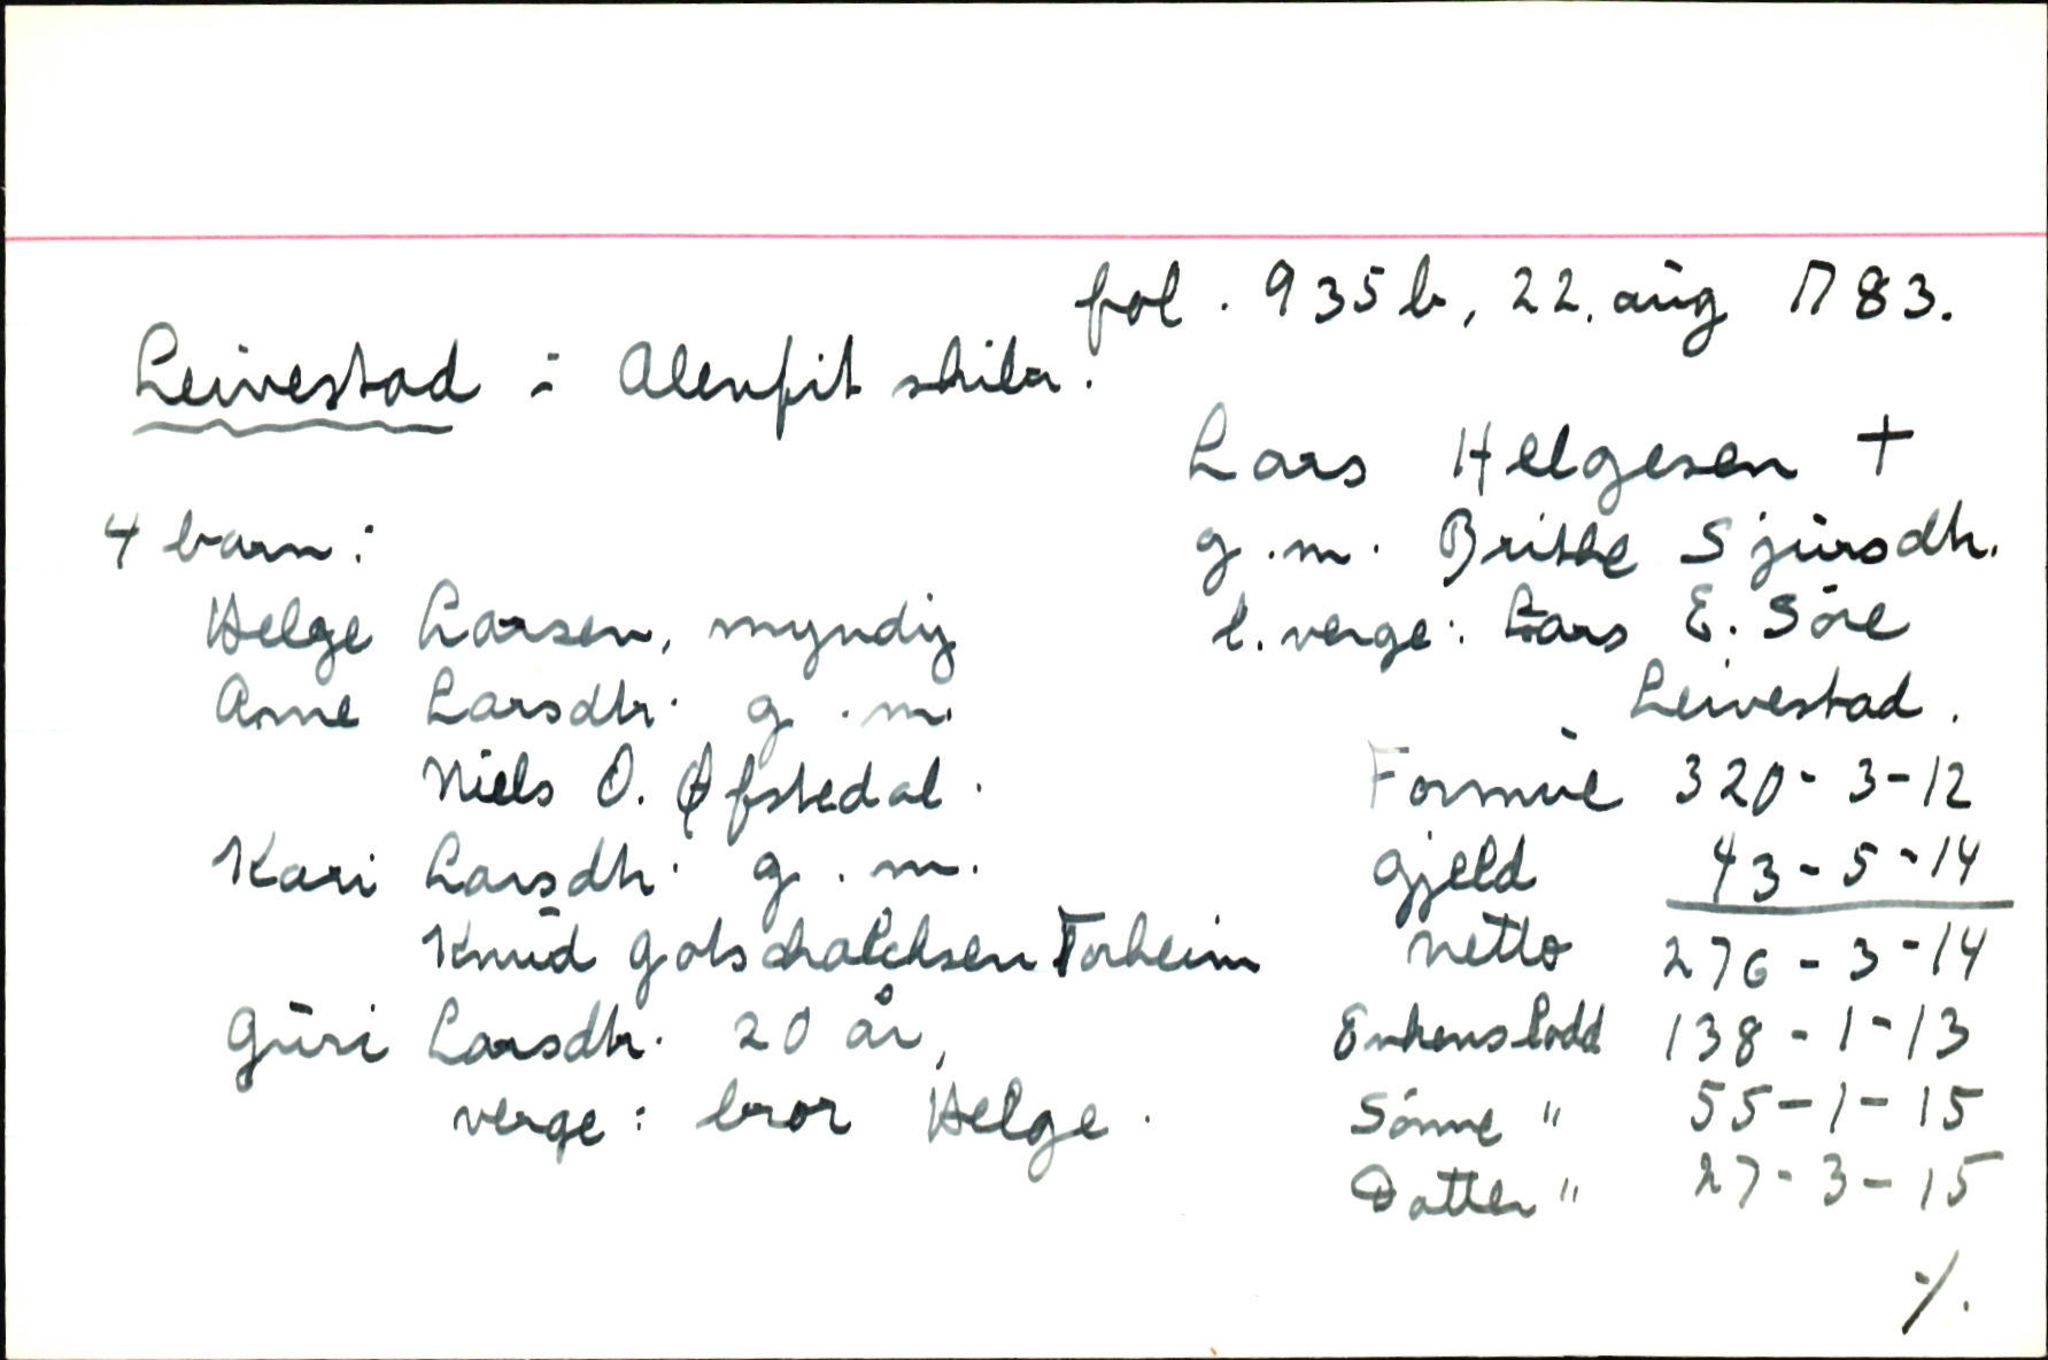 fol. 935 b, 22. aug 1783.
Leivestad : Alenfit skibr.
Lars Helgesen +
g.m. Brithe Sjursdtr.
l. verge: Lars E. Söre
Leivestad.
4 barn:
Helge Larsen, myndig
Anne Larsdtr. g.m.
Niels O. Øfstedal.
Kari Larsdtr. g.m.
Knud Gotschalchsen Torheim
Guri Larsdtr. 20 år,
verge: bror Helge.
Formue 320-3-12
Gjeld 43-5-14
Netto 276-3-14
Enkens lodd 138-1-13
Sönne " 55-1-15
Datter " 27-3-15
./.